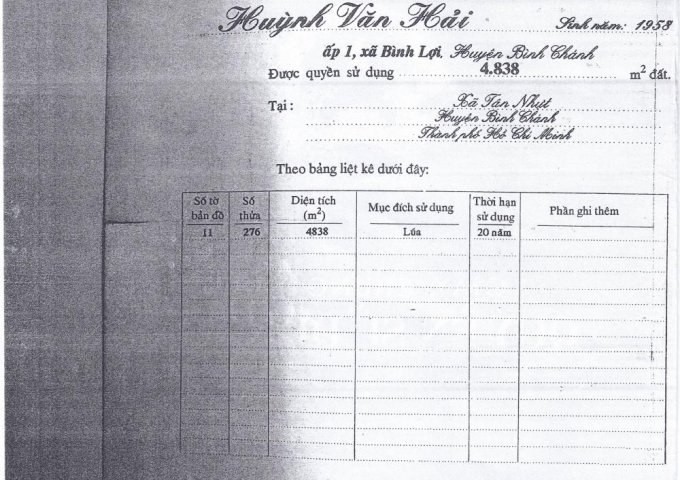 Huỳnh Văn Hải Sinh năm: 1958
ấp 1, xã Bình Lợi. Huyện Bình Chánh
Được quyền sử dụng 4.838 m² đất.
Tại: Xã Tân Nhựt
Huyện Bình Chánh
Thành phố Hồ Chí Minh
Theo bảng liệt kê dưới đây:
Số tờ bản đồ Số thửa Diện tích (m²) Mục đích sử dụng Thời hạn sử dụng Phần ghi thêm
11 276 4838 Lúa 20 năm